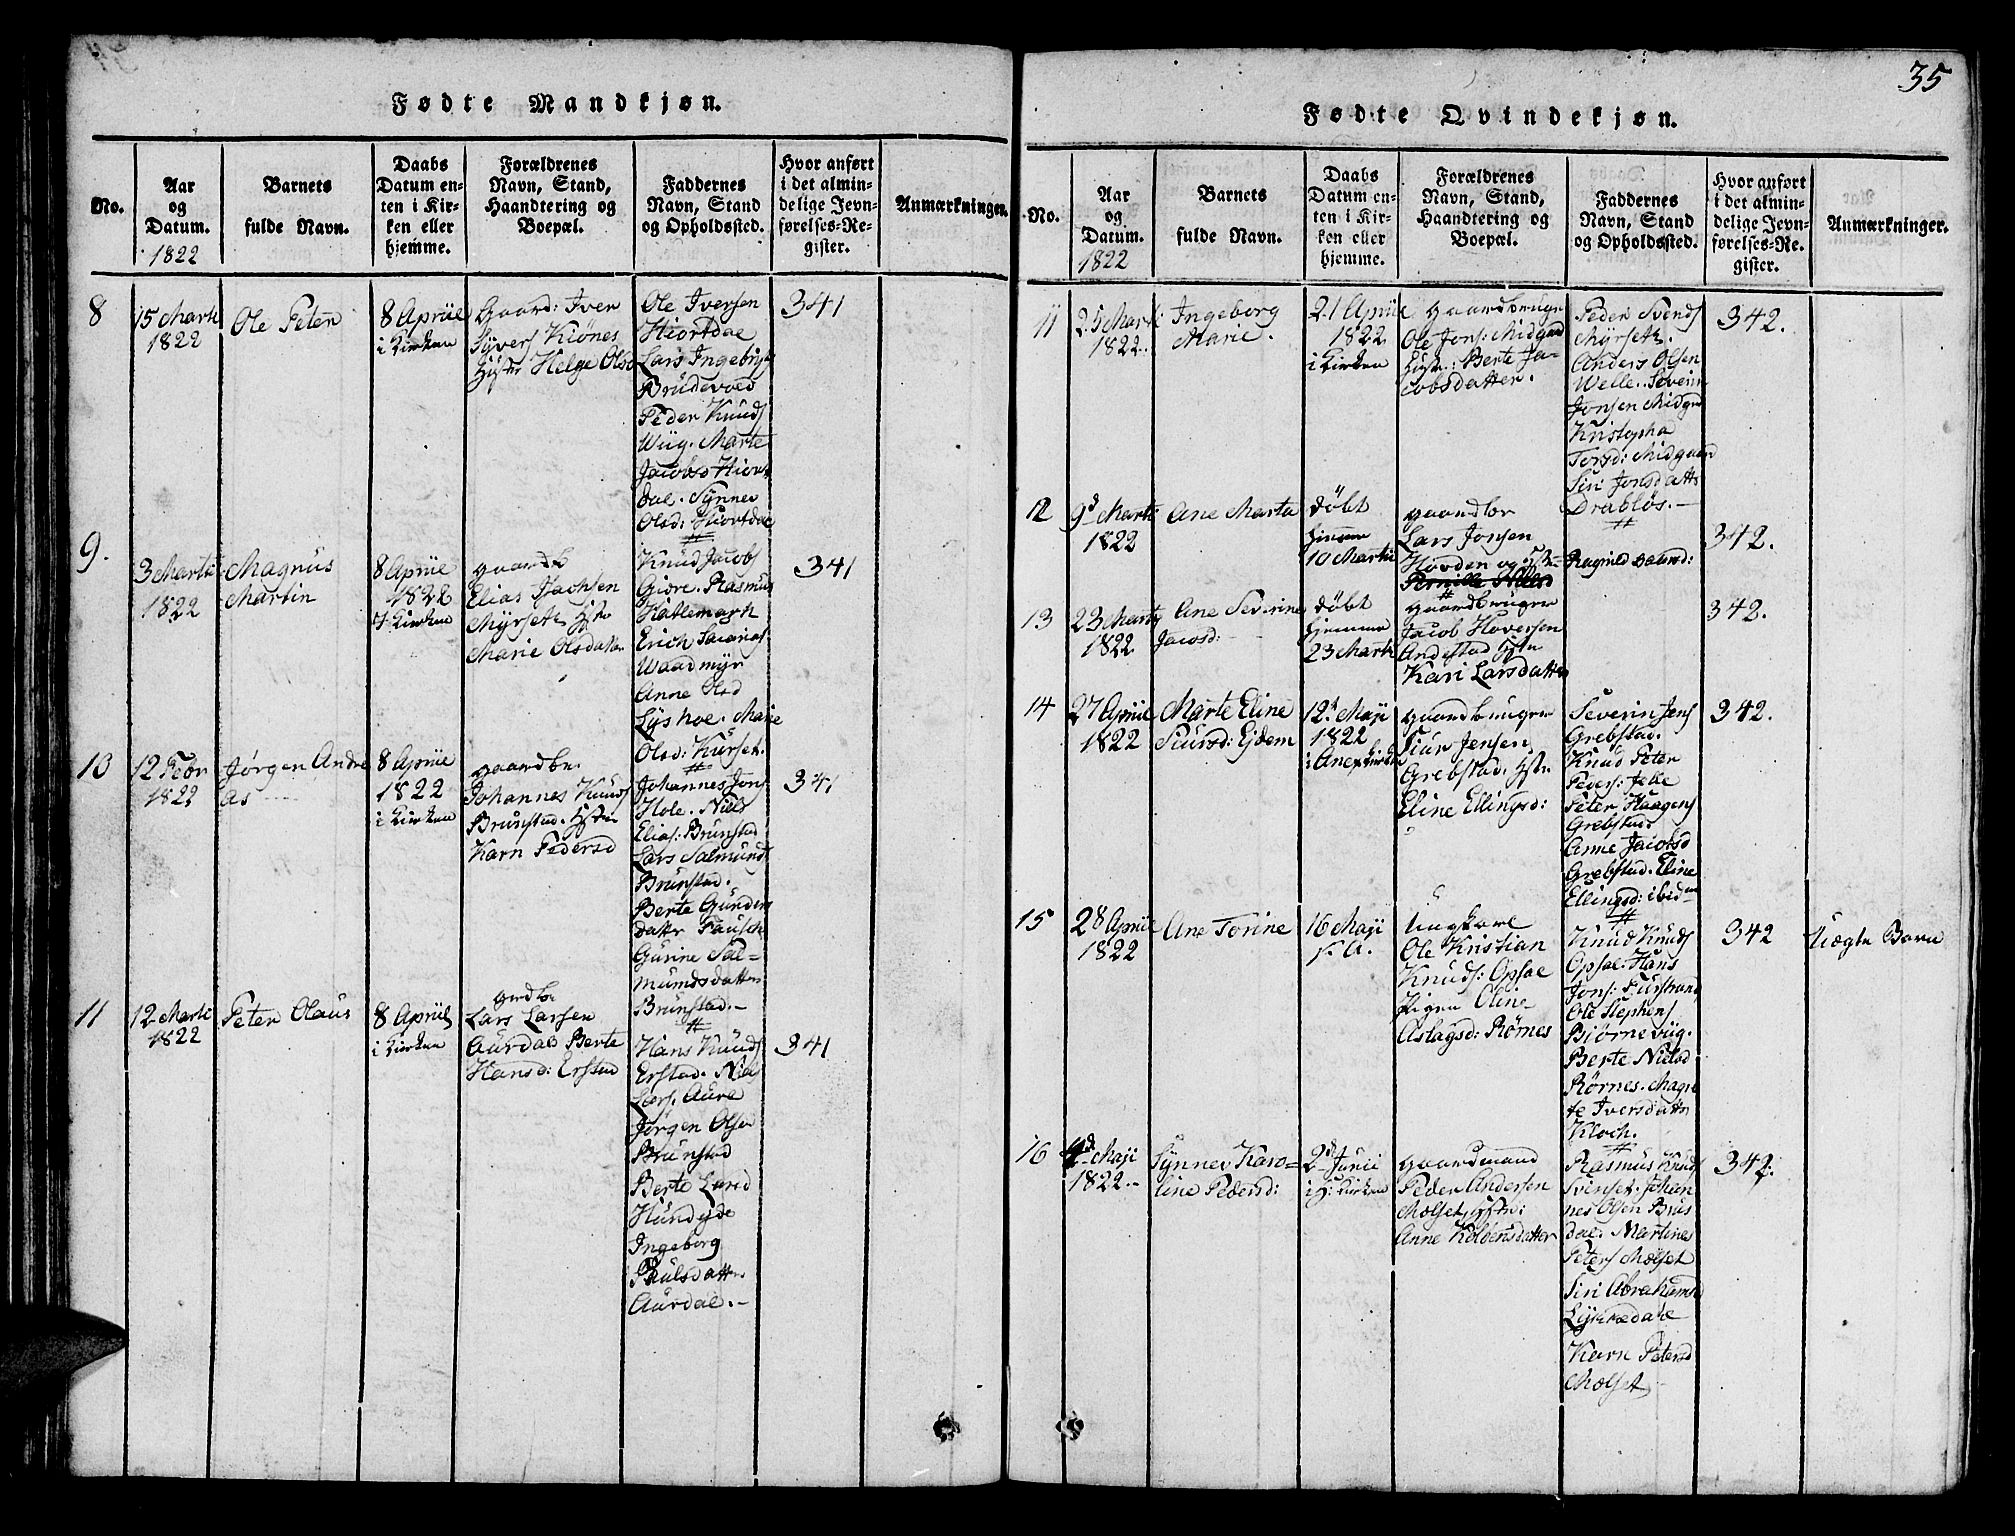 35
Fødte Mandkjøn.
No.
Aar
og
Datum.
1822
Barnets
fulde Navn.
Daabs
Datum en-
ten i Kir-
ken eller
hjemme.
Forældrenes
Navn, Stand,
Haandtering og
Boepæl.
Faddernes
Navn, Stand
og Opholdssted.
Hvor anført
i det almin-
delige Jevn-
førelses-Re-
gister.
Anmærkninger.
8
15 Marti
1822
Ole Peter
8 Apriie
i Kirken
Gaard: Iver
Syvers Kiønes
Hustr Helge Olsd
Ole Iversen
Hiortdae
Lars Ingebrigts
Brudevoed
Peder Knuds
Wiig. Marte
Jacobsd Hiort
dae. Synnev
Olsd: Hiortdae
341
9.
3 Marti
1822
Magnus
Martin
8 Apriie
1822
i Kirken
gaardb
Elias Isachsen
Myrset Hstr
Marie Olsdatter
Knud Jacobs
Giøre. Rasmus
Hatlemark
Erich
Waadmyr
Anne Olsd
Lyshoe. Marie
Olsd: Kurset.
341
10
12 Febr
1822
Jørgen Andre
as
8 Apriie
1822
i Kirken
gaardbr.
Johannes Knuds
Brunstad. Hstr
Karn Pedersd
Johannes Jons
Hole. Niels
Elias: Brunstad
Lars Salmunds
Brunstad.
Berte Gunders
datter Fausch
Gurine Sal-
mundsdatter
Brunstad.-
341
11
12 Marti
1822
Peter Olaus
8 Apriil
i Kirken
grdbr
Lars Larsen
Aurdae Berte
Hansd: Erstad
Hans Knuds
Erstad. Niels
Lars. Aure
Jørgen Olsen
Brunstad
Berte Larsd
Hundeide
Ingeborg
Paulsdatter
Aurdae.-
341
Fødte Qvindekjøn.
No.
Aar
og
Datum.
1822
Barnets
fulde Navn.
Daabs
Datum en-
ten i Kir-
ken eller
hjemme.
Forældrenes
Navn, Stand,
Haandtering og
Boepæl.
Faddernes
Navn, Stand
og Opholdssted.
Hvor anført
i det almin-
delige Jevn-
førelses-Re-
gister.
Anmærkninger.
11
25 Marti
1822..
Ingeborg
Marie.
21 Apriie
1822
i Kirken
gaardbruger
Ole Jons: Midgaard
Hustr: Berte Ja-
cobsdatter.
Peder Svends
Myrset.
Anders Olsen
Welle. Severin
Jonsen Midgrd
Kristopha
Torsd: Midgaard
Siri Jonsdatter
Drabløs.-
342.
12
9d Marti
1822
Ane Marta
døbt
hjemme
10 Marti
gaardbr
Lars Jonsen
Hovden og Hstr
Ragnild
342.
13
23 Marty
1822
Ane Severine
Jacobsd:
døbt
hjemme
23 Marti
gaardbruger
Jacob Hoversen
Andestad Hstr
Kari Larsdatter
342.
14
27 Apriie
1822
Marte Eline
Siursd: Ejdem
12 Maji
1822
i Anexkirken
gaardbruger
Siur Jensen
Grebstad. Hstr.
Eline Ellingsd:
Severin Jens
Grebstad.
Knud Peter
Peders: Jelle
Peter Haagens
Grebstad
Anne Jacobsd
Grebstad. Eline
Ellingsd: ibidem
342.
15
28 Apriie
1822
Ane Torine
16 Maji
Ungkarl
Ole Kristian
Knuds: Opsae
Pigen Oline
Aslagsd: Rørnes
Knud Knuds
Opsae. Hans
Jons: Furstrand
Ole Stephens
Biørneviig.
Berte Nielsd
Rørnes. Magre
te Iversdatter
Kloch.
342
Uægte Barn
16
4d Maji
1822.-
Synnev Karo-
line Pedersd:
2d Junii
i H: Kirken
gaardmand
Peder Andersen
Molset Hstr:
Anne Koldensdatter
Rasmus Knuds
Svinset. Johan
nes Olsen Brus
dae. Martines
Peters Molset
Siri Abrahamsd
Karn Petersd
Molset
342.